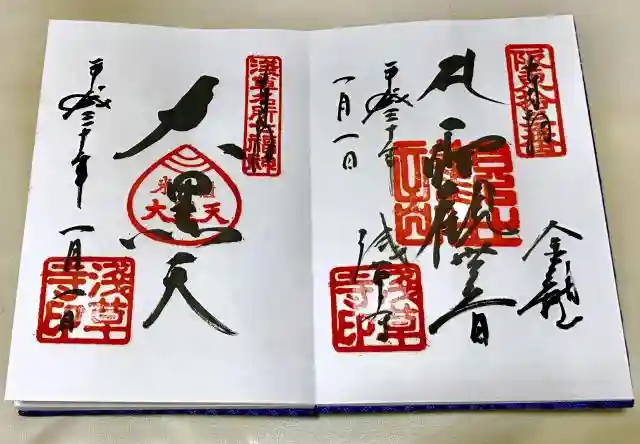 阪東拾三番
奉拝
金龍山
観世音
平成三十年
一月一日
浅草寺
淺草寺印
淺草名所七福神
奉拝
大黒天
大天
平成三十年
一月一日
淺草寺印